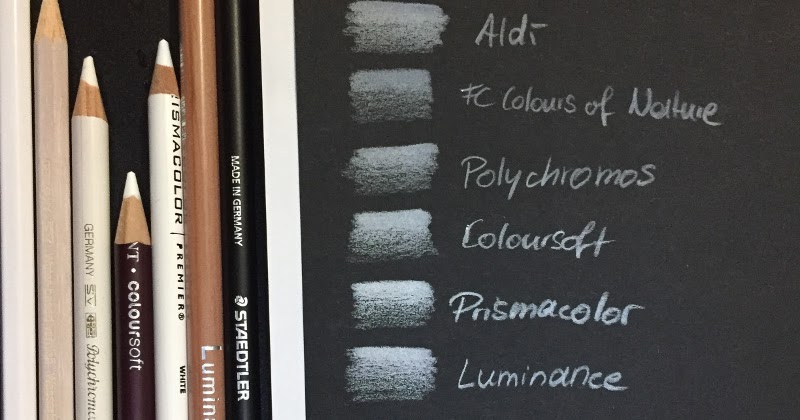 GERMANY
SV
Polychromo
NT • coloursoft
ISMACOLOR | PREMIER®
WHITE
Lumin
MADE IN GERMANY
STAEDTLER
Aldi
FC Colours of Nature
Polychromos
Coloursoft
Prismacolor
Luminance